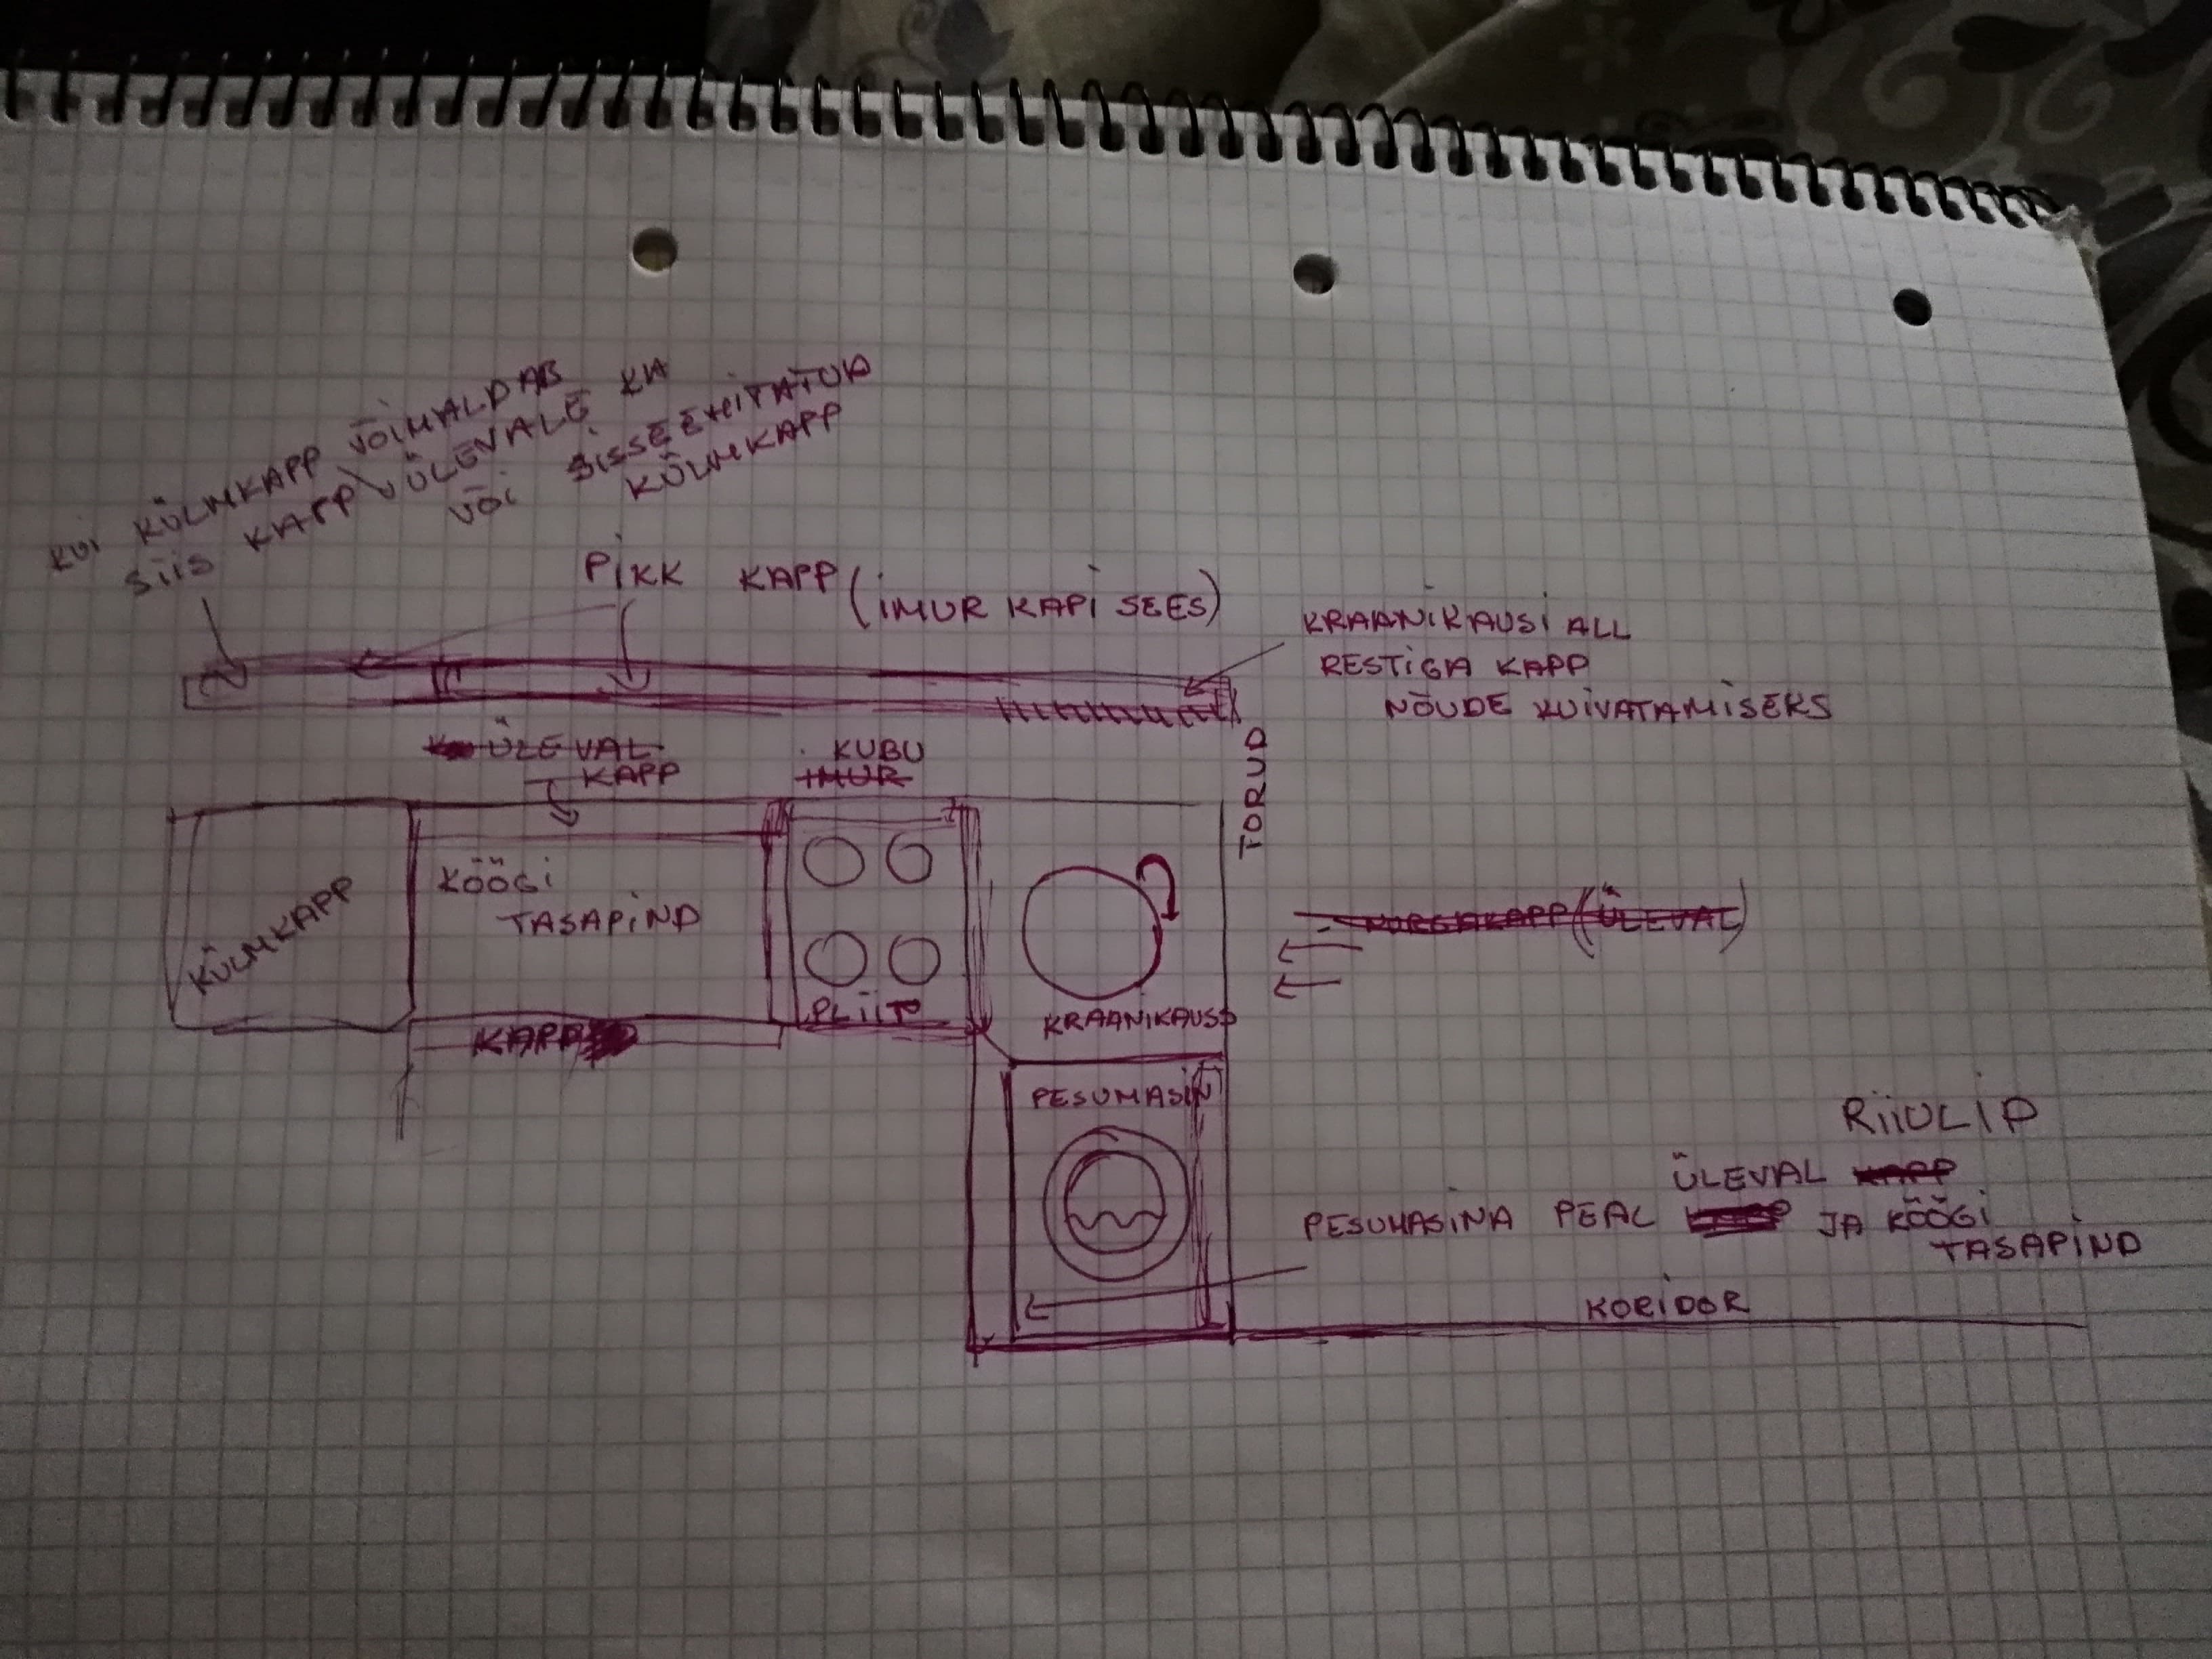 KUI KÜLMKAPP VÕIMALDAB
SIIS KAPP ÜLEVALE KA
VÕI SISSEEHITATUD
KÜLMKAPP
PIKK KAPP (IMUR KAPI SEES)
KRAANIKAUSI ALL
RESTIGA KAPP
NÕUDE KUIVATAMISEKS
ÜLEVAL
KAPP
KUBU
IMUR
TORUD
KÜLMKAPP
KÖÖGI
TASAPIND
NURGAKAPP (ÜLEVAL)
PLIIT
KRAANIKAUSS
KAPP
PESUMASIN
RIIULID
ÜLEVAL KAPP
PESUMASINA PEAL JA KÖÖGI
TASAPIND
KORIDOR